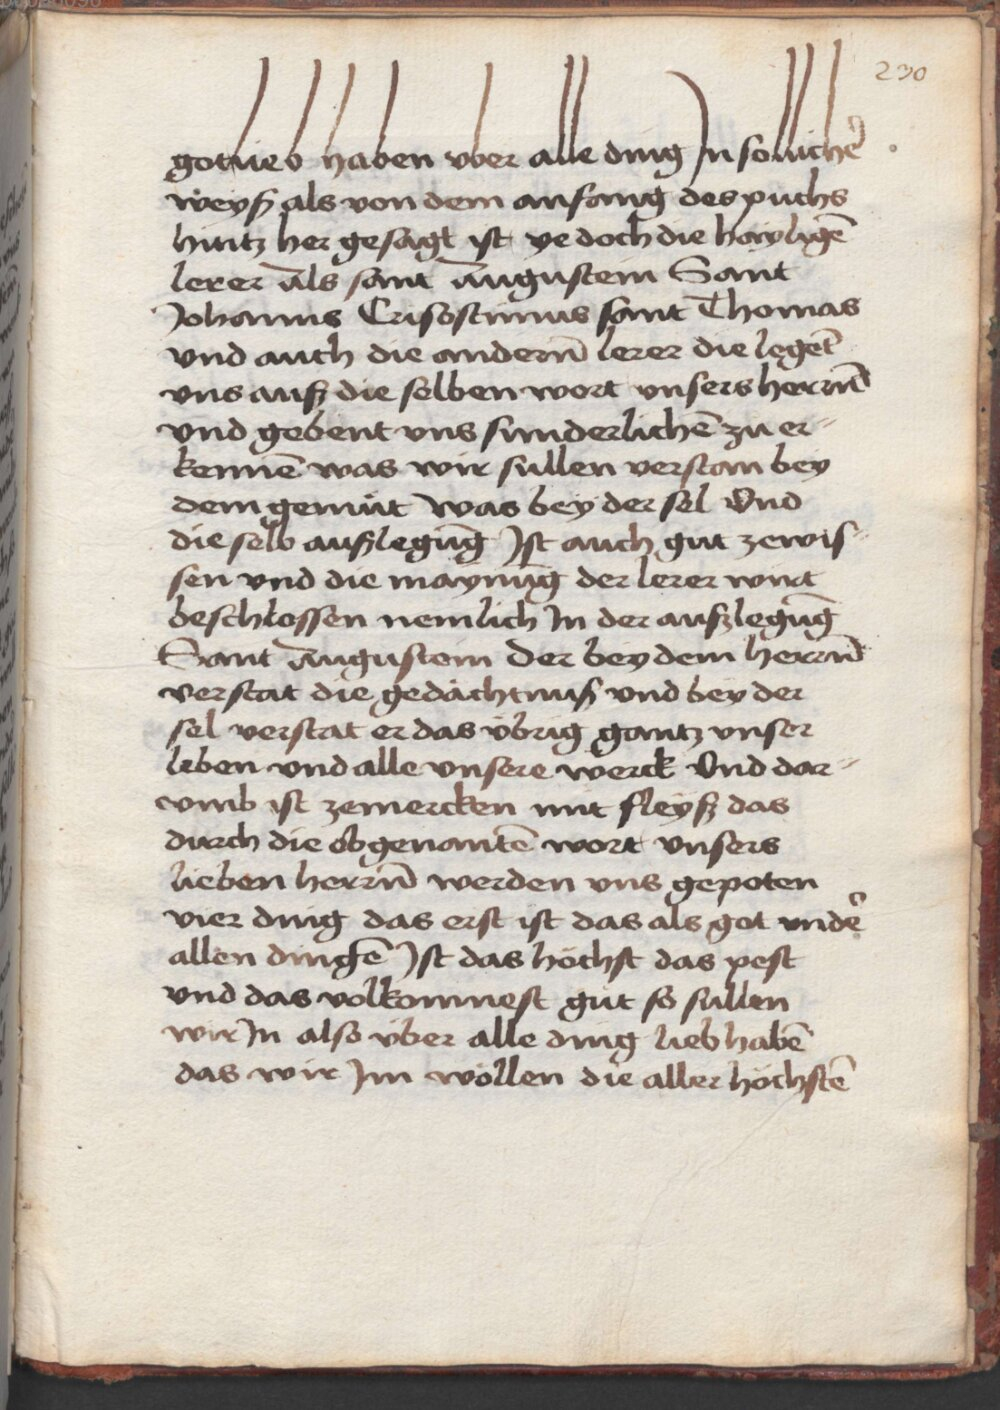 230
got lieb haben vber alle ding Jn sollichē
weyß als von dem anfang des puchs
hintz her gesagt ist ye doch die hayligē
lerer als sant Augustein Sant
Johannis Crisostimus sant Thomas
vnd auch die anderñ lerer die legēt
vns auß die selben wort vnsers herrñ
vnd gebent vns sunderlichē zu er⸗
kennē was wir sullen verstan bey
dem gemüt was bey der sel Vnd
die selb außlegūg Jst auch gut zewis⸗
sen vnd die maynūg der lerer wirt
beschlossen nemlich Jn der außlegūg
Sant Augustein Der bey dem herrñ
verstat die gedächtnuß vnd bey der
sel verstat er das übrig gantz vnser
leben vnd alle vnsere werck Vnd dar⸗
vmb ist zemercken mit fleyß das
durch die obgenantē wort vnsers
lieben herrñ werden vns gepoten
vier ding das erst ist das als got vndē
allen dingē Jst das höchst das pest
vnd das volkomnest gut so sullen
wir Jn also über alle ding lieb habē
das wir Jm wöllen die aller höchstē